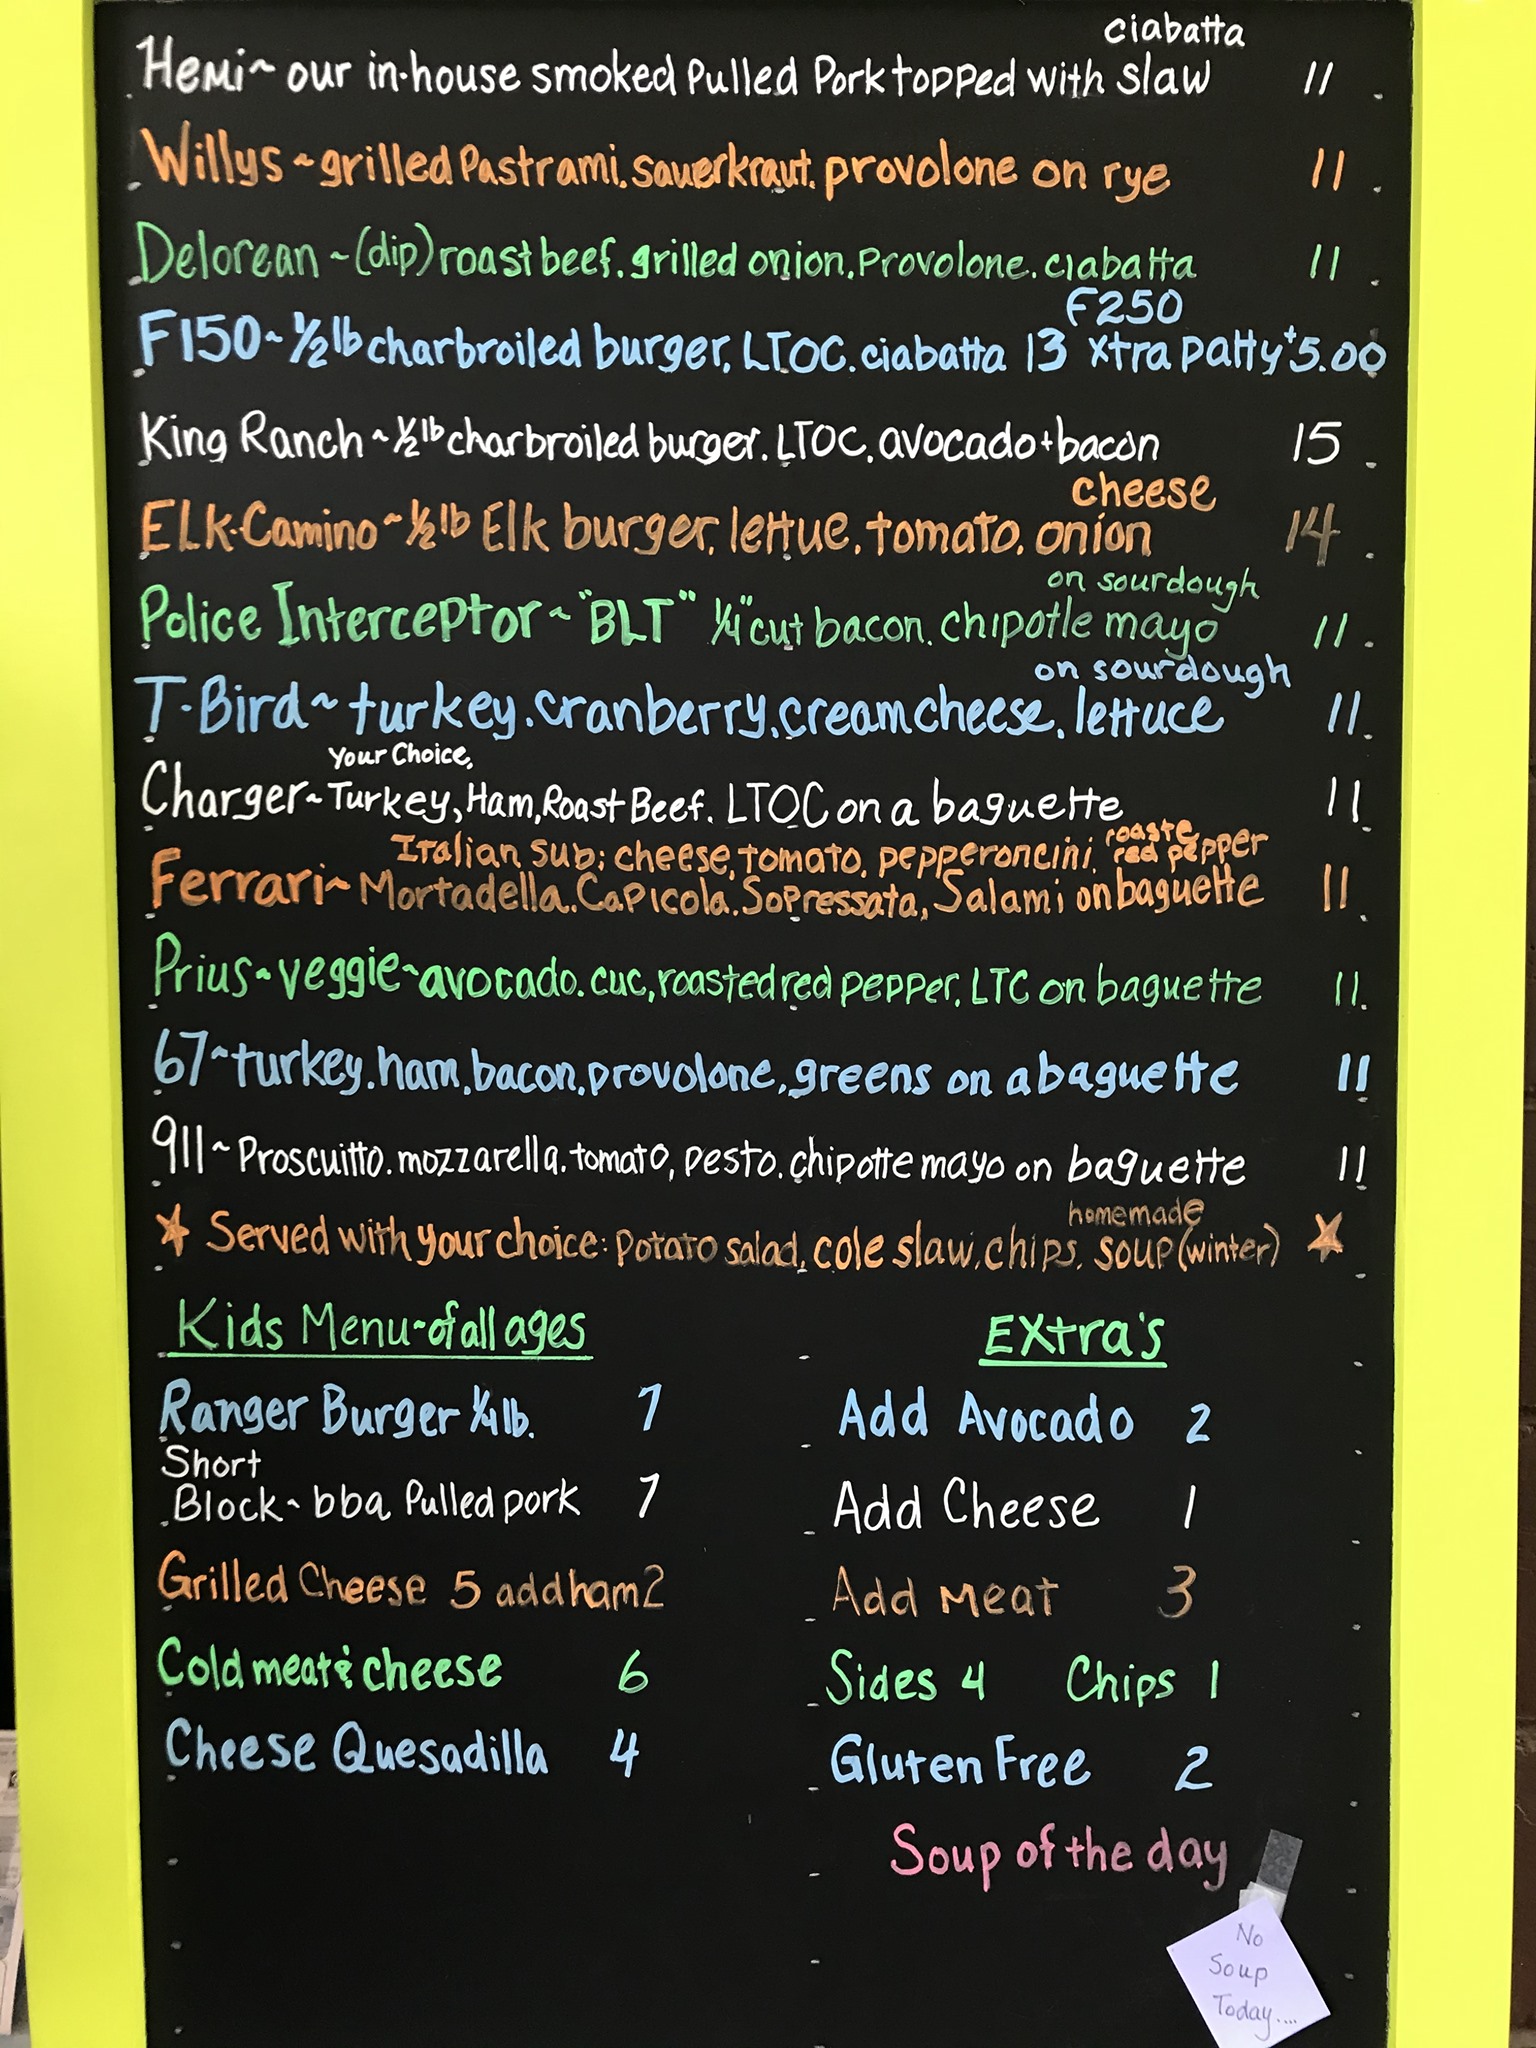 ciabatta
Hemi~ our in-house smoked Pulled Pork topped with slaw 11
Willys~grilled Pastrami. sauerkraut. provolone on rye 11
Delorean~(dip) roast beef. grilled onion. Provolone. ciabatta 11
F250
F150~½ lb charbroiled burger, LTOC. ciabatta 13 xtra patty +5.00
King Ranch~½ lb charbroiled burger. LTOC. avocado + bacon 15
cheese
ELK-Camino~½ lb Elk burger, lettue, tomato. onion 14
on sourdough
Police Interceptor~"BLT" ¼" cut bacon. chipotle mayo 11
on sourdough
T-Bird~turkey.cranberry.creamcheese. lettuce 11
Your Choice,
Charger~Turkey, Ham, Roast Beef. LTOC on a baguette 11
Italian sub; cheese, tomato, pepperoncini, roaste red pepper
Ferrari~Mortadella. Capicola. Sopressata, Salami on baguette 11
Prius~veggie~avocado. cuc, roasted red pepper, LTC on baguette 11
67~turkey.ham, bacon, provolone, greens on a baguette 11
911~Proscuitto. mozzarella. tomato, pesto. chipotte mayo on baguette 11
homemade
★ Served with your choice: Potato salad, cole slaw, chips, soup (winter) ★
Kids Menu~of all ages
Ranger Burger ¼ lb. 7
Short
Block~bbq Pulled pork 7
Grilled Cheese 5 add ham 2
Cold meat & cheese 6
Cheese Quesadilla 4
Extra's
Add Avocado 2
Add Cheese 1
Add Meat 3
Sides 4 Chips 1
Gluten Free 2
Soup of the day
No
Soup
Today....